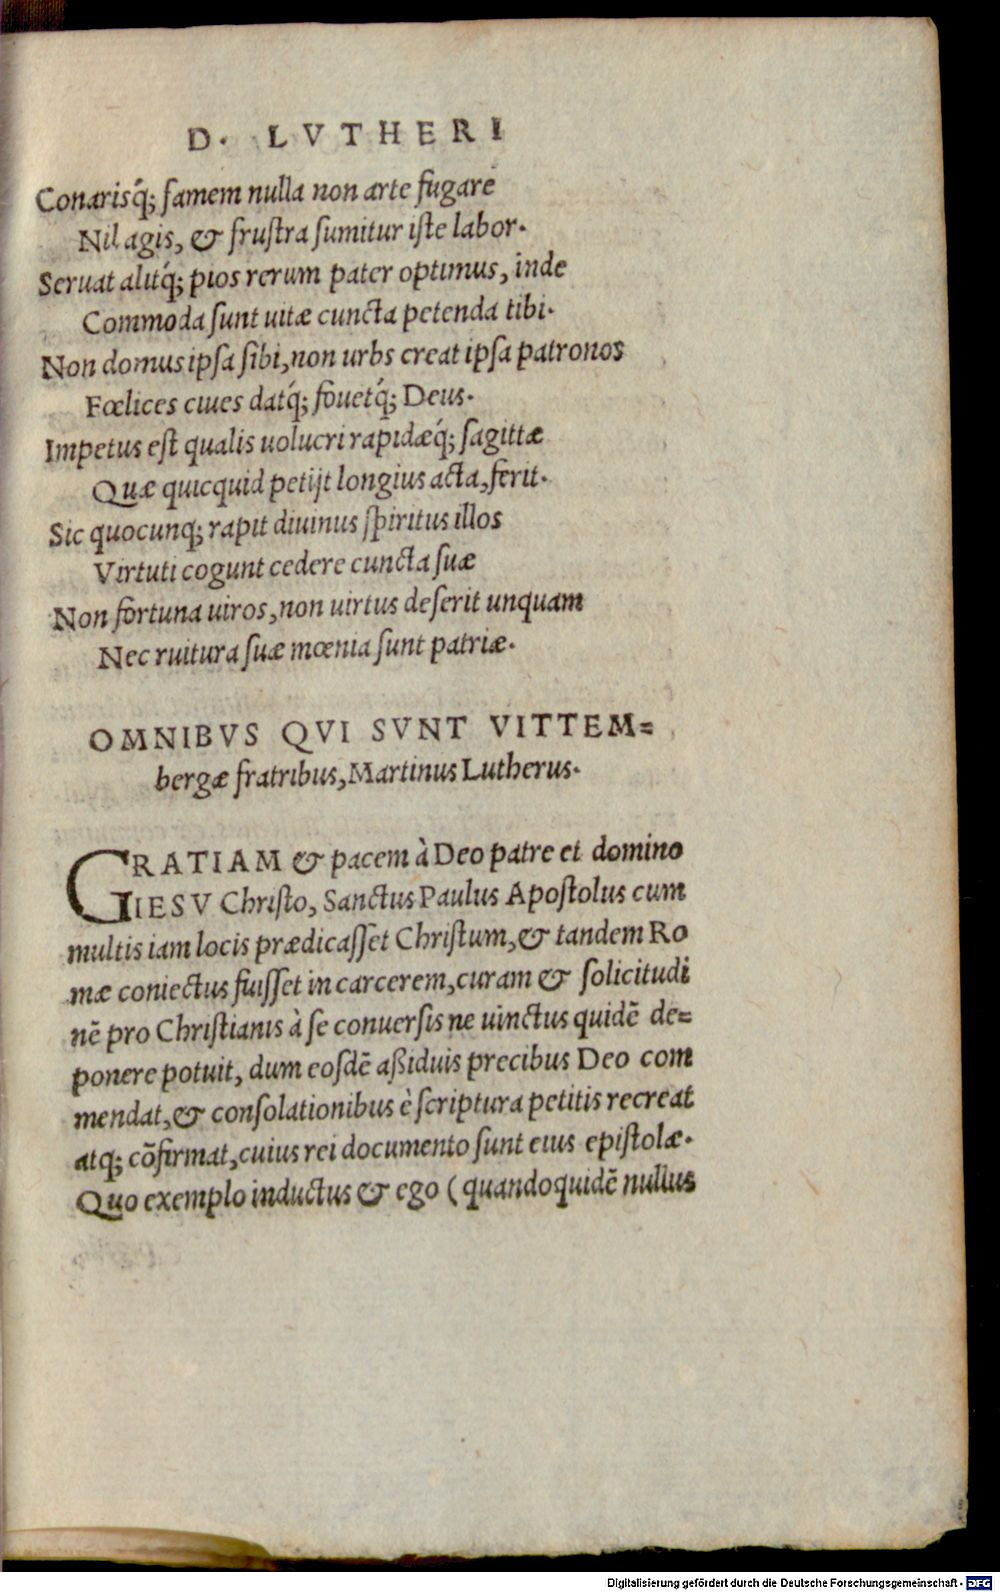 D. LVTHERI
Conarisq́; famem nulla non arte fugare
Nil agis, & frustra sumitur iste labor.
Seruat alitq́; pios rerum pater optimus, inde
Commoda sunt uitæ cuncta petenda tibi.
Non domus ipsa sibi, non urbs creat ipsa patronos
Fœlices ciues datq́; fouetq́; Deus.
Impetus est qualis uolucri rapidæq́; sagittæ
Quæ quicquid petijt longius acta, ferit.
Sic quocunq; rapit diuinus spiritus illos
Virtuti cogunt cedere cuncta suæ
Non fortuna uiros, non uirtus deserit unquam
Nec ruitura suæ mœnia sunt patriæ.
OMNIBVS QVI SVNT VITTEM=
bergæ fratribus, Martinus Lutherus.
GRATIAM & pacem à Deo patre et domino
IESV Christo, Sanctus Paulus Apostolus cum
multis iam locis prædicasset Christum, & tandem Ro
mæ coniectus fuisset in carcerem, curam & solicitudi
nē pro Christianis à se conuersis ne uinctus quidē de=
ponere potuit, dum eosdē aßiduis precibus Deo com
mendat, & consolationibus è scriptura petitis recreat
atq; cōfirmat, cuius rei documento sunt eius epistolæ.
Quo exemplo inductus & ego (quandoquidē nullus
Digitalisierung gefördert durch die Deutsche Forschungsgemeinschaft - DFG